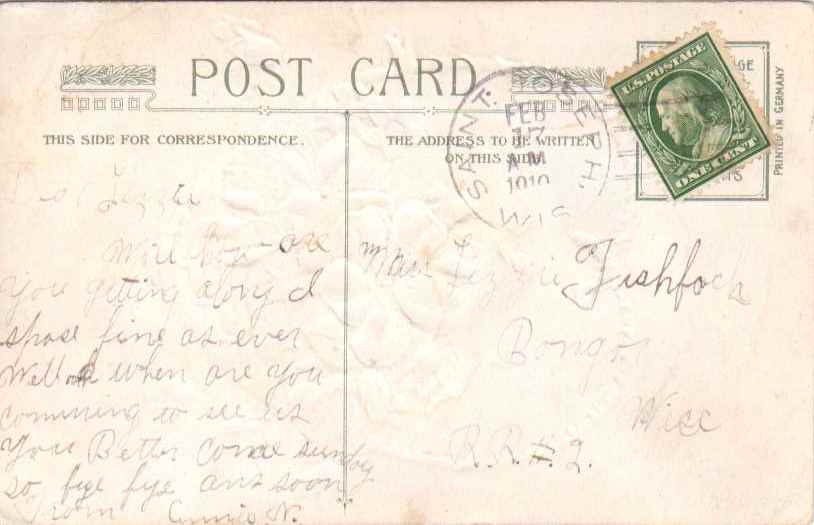 POST CARD
THIS SIDE FOR CORRESPONDENCE.
THE ADDRESS TO BE WRITTEN
ON THIS SIDE
SAINT JOSEPH. WIS
FEB
17
A M
1910
U.S. POSTAGE
ONE CENT
PRINTED IN GERMANY
Lizzie
Well how are
you getting along I
spose fine as ever
Well when are you
comming to see us
you Better come sunday
so bye bye ans soon
From Annie N.
Miss Lizzie Fishbach
Bangor
Wisc
R.R.#.2.